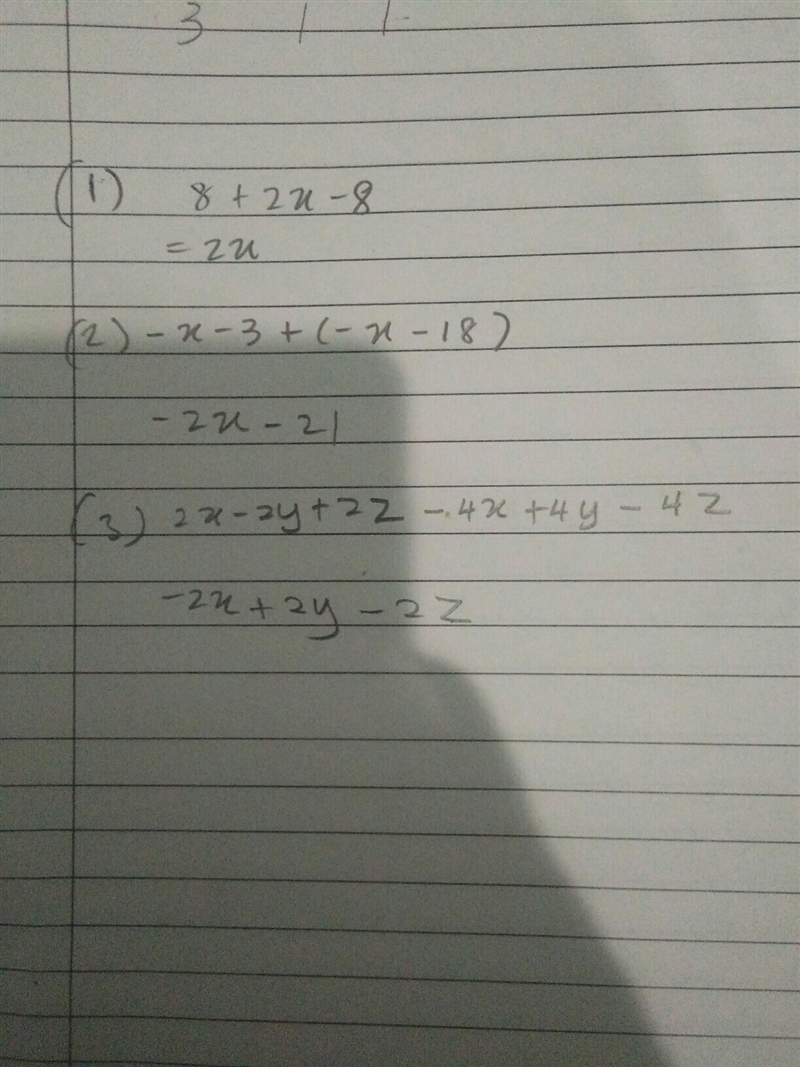 3 1 1
(1) 8 + 2x - 8
= 2x
(2) - x - 3 + (- x - 18)
- 2x - 21
(3) 2x - 2y + 2z - 4x + 4y - 4z
- 2x + 2y - 2z